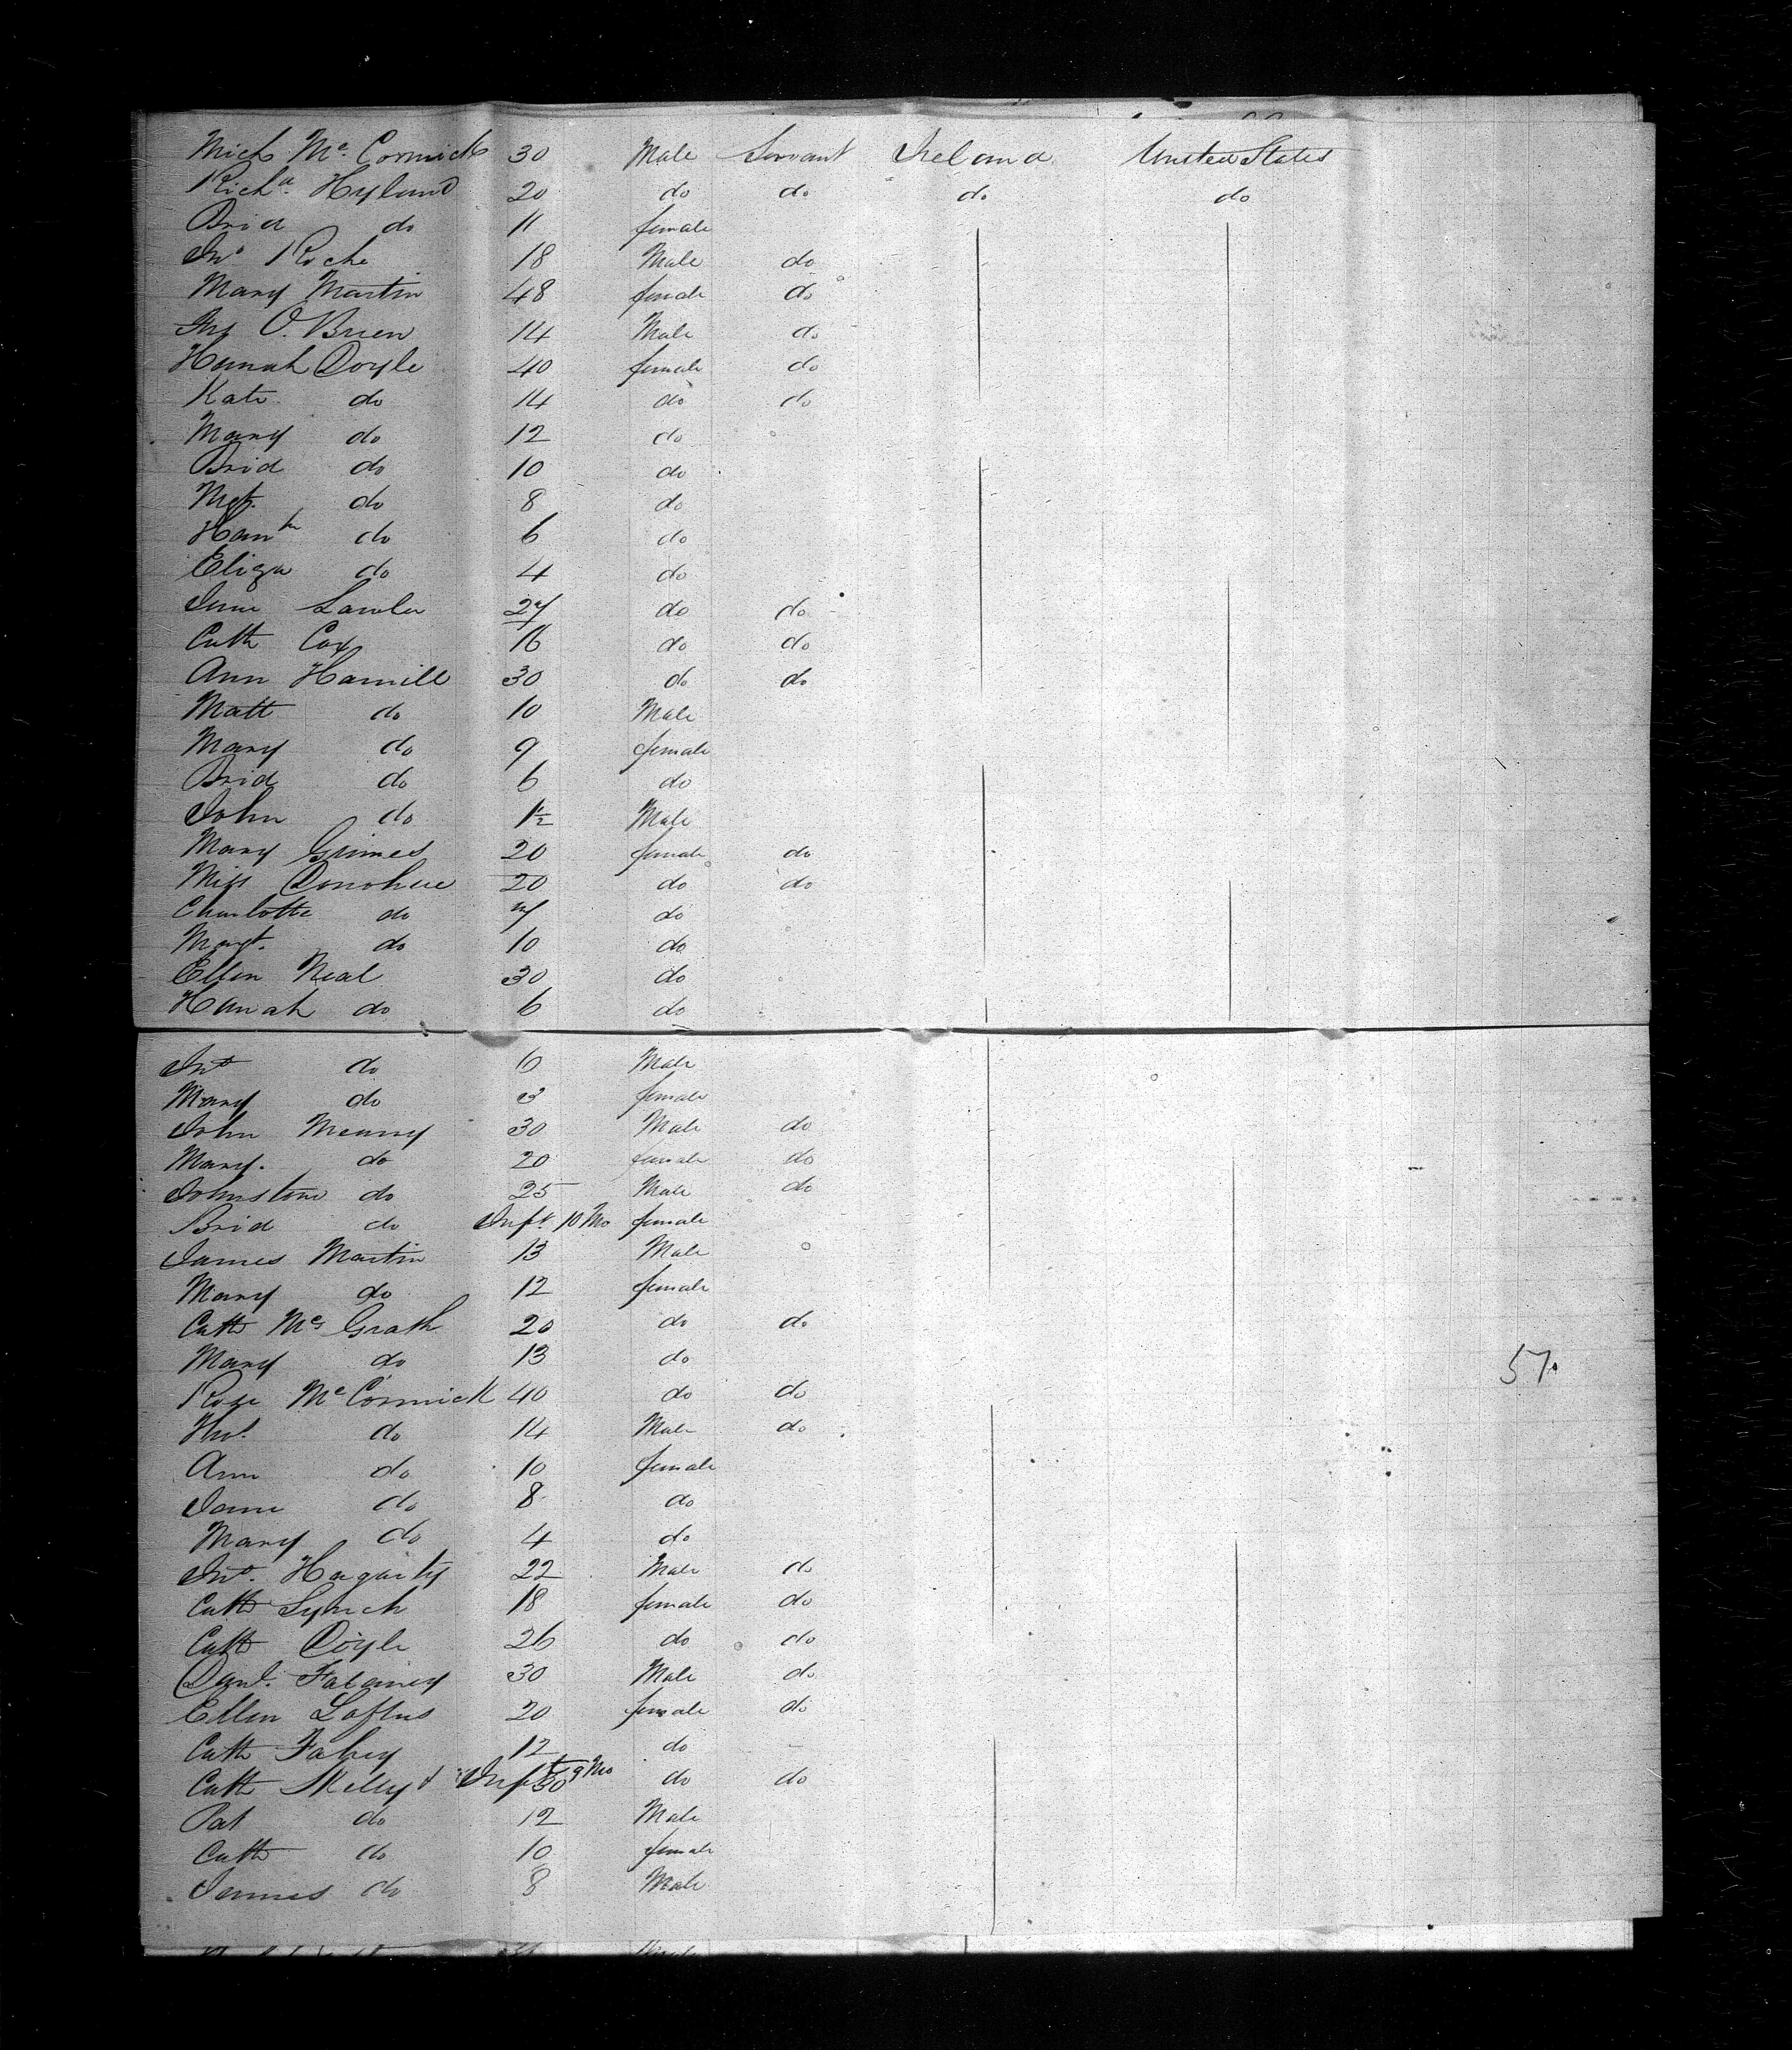 Mich Mc Cormick 30 Male Servant Ireland United States
Richd Hyland 20 do do do do
Brid do 11 female
Jno Roche 18 Male do
Mary Martin 48 female do
Jas O. Brien 14 Male do
Hannah Doyle 40 female do
Kate do 14 do do
Mary do 12 do
Brid do 10 do
Mgt. do 8 do
Hanh do 6 do
Eliza do 4 do
Jane Lawler 27 do do
Cath Cox 16 do do
Ann Hamill 30 do do
Matt do 10 Male
Mary do 9 female
Brid do 6 do
John do 1½ Male
Mary Grimes 20 female do
Miss Donohue 20 do do
Charlotte do 7 do
Margt. do 10 do
Ellen Neal 30 do
Hanah do 6 do
Jno do 6 Male
Mary do 3 female
John Meany 30 Male do
Mary. do 20 female do
Johnstone do 25 Male do
Brid do Inft. 10 Mo female
James Martin 13 Male
Mary do 12 female
Cath Mc Grath 20 do do
Mary do 13 do
57
Rose Mc Cormick 40 do do
Thos. do 14 Male do
Ann do 10 female
Jane do 8 do
Mary do 4 do
Jno. Hagarty 22 Male do
Cath Lynch 18 female do
Cath Doyle 26 do do
Danl. 30 Male do
Ellen Loftus 20 female do
Cath Fahey 12 do
Cath & Inft 9 Mo 30 do do
Pat do 12 Male
Cath do 10 female
James do 8 Male